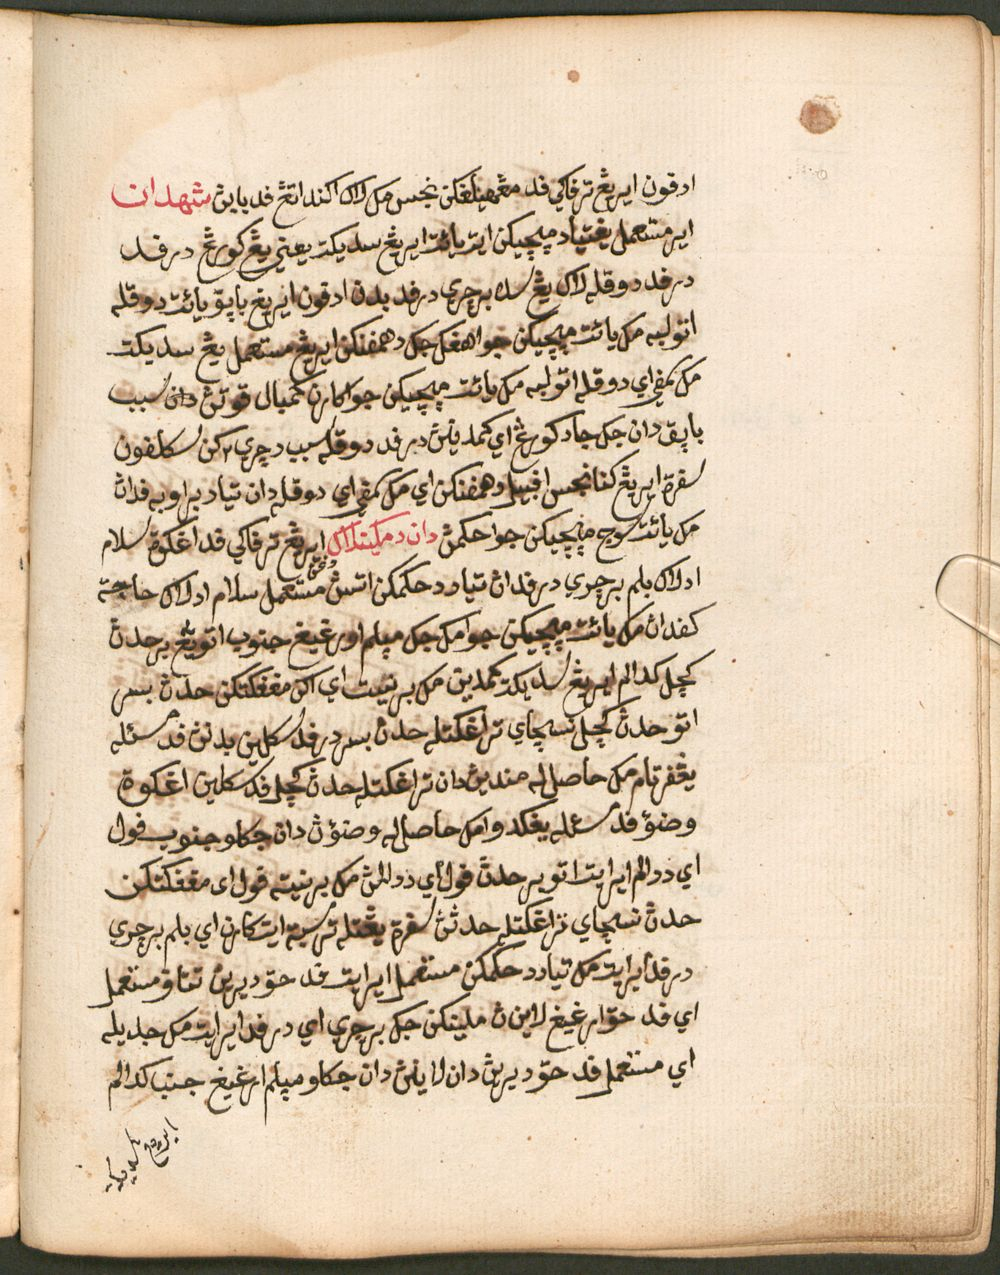 ادفون اير يڠ ترفاكي فد مڠهيلڠكن نجس مك لاݢ اكن داتڠ فد بابن شهدان
اير مستعمل يڠتياد مڽوچيكن ايت يائت اير يڠ سديكت يعني يڠ كورڠ درفد
درفد دو قله لاݢ يڠ سده برچري درفد بدن ادفون اير يڠ باپق يائت دو قله
اتو لبه مك يائت مڽوچيكن جوا هڠݢ جك دهمفنكن اير يڠ مستعمل يڠ سديكت
مك سمفي اي دو قله اتو لبه مك يائت مڽوچيكن جوا كارن كمبالي قوتن دان سبب
باپق دان جك جاد كورڠ اي كمدينن درفد دو قله سبب دچري٢كن سكلفون
سفرة اير يڠ كنا نجس افبيل دهمفنكن اي مك سمفي اي دو قله دان تياد براوبه فدان
مك يائت سوچ مڽوچيكن جوا حكمن دان دمكينله لاݢ اير يڠ ترفاكي فد اڠكوة سلام
اد لاݢ بلم برچري درفدان تياد دحكمكن اتسن مستعمل سلام اد لاݢ حاجة
كفدان مك يائت مڽوچيكن جوا مك جك مڽلم اورڠيڠ جنوب اتو يڠ برحدث
كچيل كدالم اير يڠ سديكت كمدين مك برنيت اي اكن مڠڠكتكن حدث بسر
اتو حدث كچيل نسچاي تراڠكتله حدث بسر درفد سكلين بدنن فد مسئله
يڠفرتام مك حاصله مندين دان تراڠكتله حدث كچيل فد سكلين اڠكوة
وضوء فد مسئله يڠكدوا مك حاصله وضوءن دان جكلو جنوب فول
اي ددالم اير ايت اتو برحدث فول اي ددالمن مك برنيته فول اي مڠڠكتكن
حدث نسچاي تراڠكتله حدثن سفرة يڠتله ترسبة ايت كارن اي بلم برچري
درفد اير ايت مك تياد دحكمكن مستعمل اير ايت فد حق ديرين تتاق مستعمل
اي فد حق اورڠيڠ لاينن ملينكن جك برچري اي درفد اير ايت مك جديله
اي مستعمل فد حق ديرين دان لاينن دان جكلو مڽلم اورڠيڠ جنب كدالم
اير يڠ سديكت